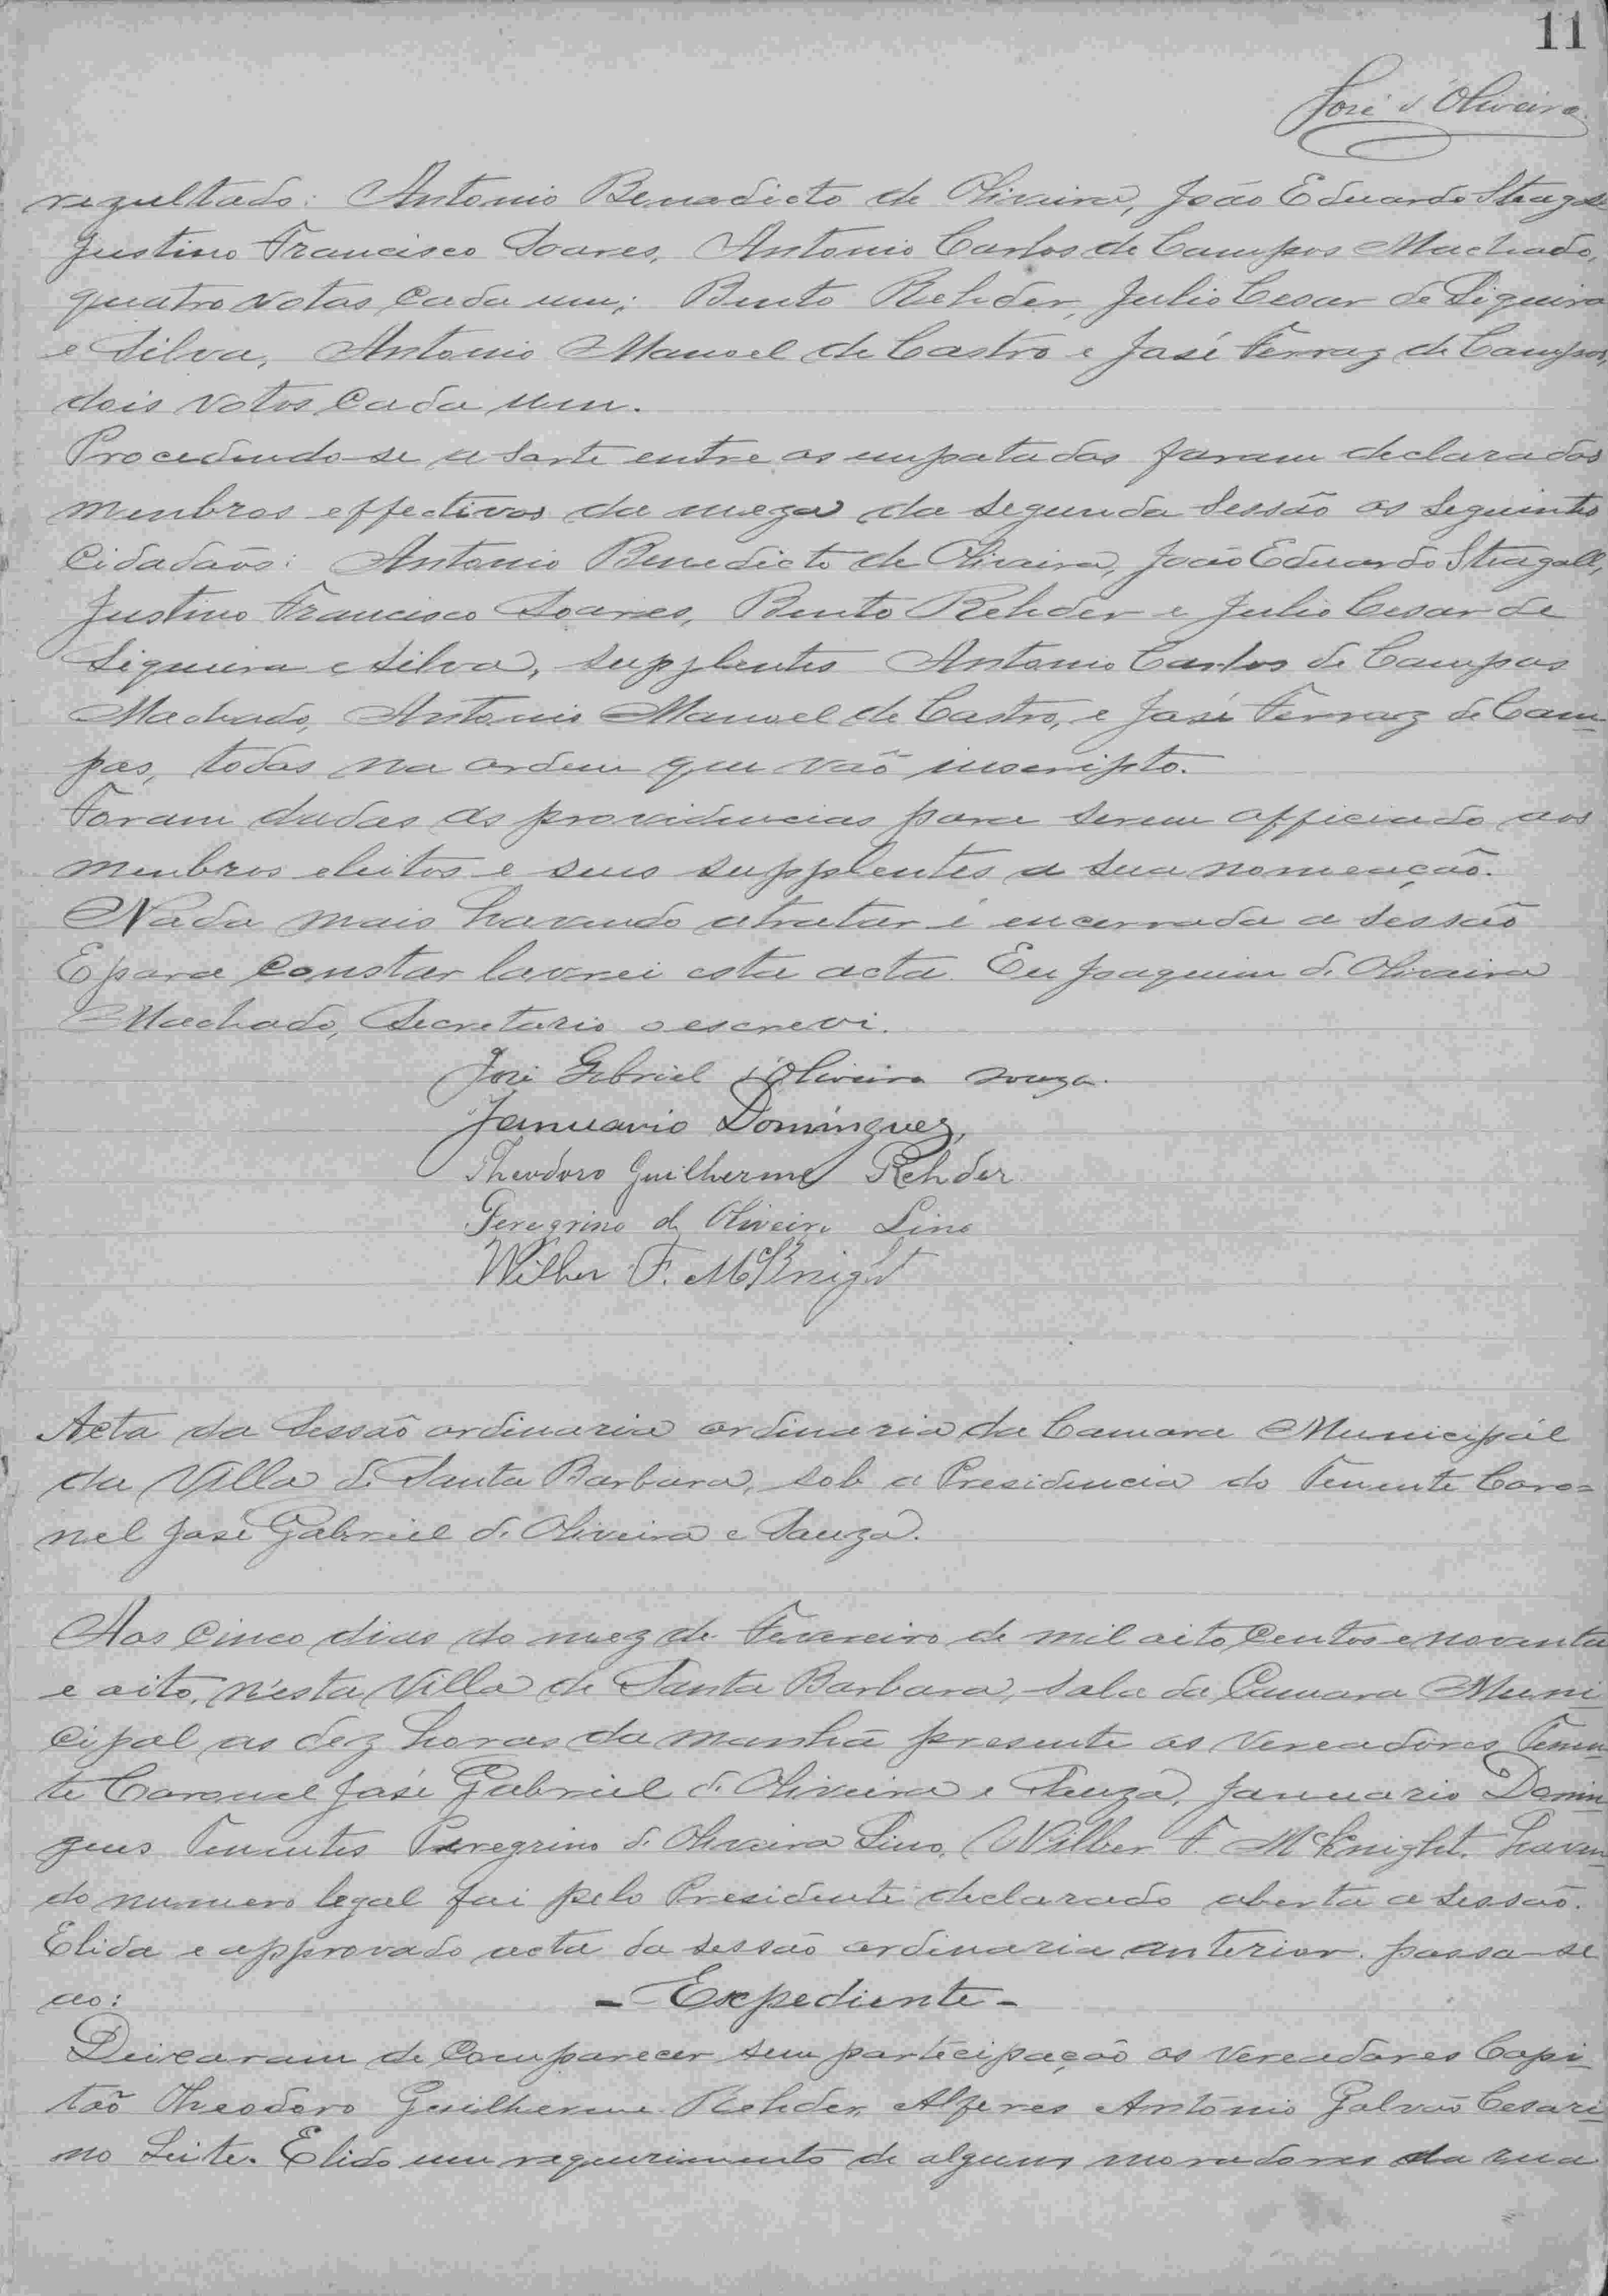 11
José d'Oliveira
rezultado: Antonio Benedicto de Oliveira, João Eduardo Stragall
Justino Francisco Soares, Antonio Carlos de Campos Machado,
quatro votos cada um; Bento Rehder, Julio Cesar de Siqueira
e Silva, Antonio Manoel de Castro e José Ferraz de Campos,
dois votos cada um.
Procedendo-se a sorte entre os empatados foram declarados
menbros effectivos da meza da segunda sessão os seguintes
Cidadaõs: Antonio Benedicto de Oliveira, João Eduardo Stragall,
Justino Francisco Soares, Bento Rehder e Julio Cesar de
Siqueira e Silva, supplentes Antonio Carlos de Campos
Machado, Antonio Manoel de Castro, e José Ferraz de Cam-
pos, todos na ordem que vaõ inscripto.
Foram dadas as providencias para serem officiado aos
menbros eleitos e seus supplentes a sua nomeaçaõ.
Nada mais havendo a tratar é encerrada a sessão
E para constar lavrei esta acta. Eu Joaquim de Oliveira
Machado, Secretario o escrevi.
José Gabriel d'Oliveira Souza.
Januario Dominguez,
Theodoro Guilherme Rehder
Peregrino de Oliveira Lino
Wilber F. McKnight
Acta da Sessaõ ordinaria ordinaria da Camara Municipál
da Villa de Santa Barbara, sob a Presidencia do Tenente Coro=
nel José Gabriel de Oliveira e Souza.
Aos cinco dias do mez de Fevereiro de mil oito centos e noventa
e oito, n'esta Villa de Santa Barbara, sala da Camara Muni
cipal as dez horas da manhã presente os Vereadores Tenen-
te Coronel José Gabriel de Oliveira e Souza, Januario Domin
gues Tenentes Peregrino de Oliveira Lino, Wilber F. McKnight. Haven-
do numero legal foi pelo Presidente declarado aberta a sessão.
E lida e approvado acta da sessão ordinaria anterior. passa-se
ao: - Expediente -
Deixaram de comparecer sem participaçaõ os Vereadores Capi-
taõ Theodoro Guilherme Rehder, Alferes Antonio Galvão Cesari-
no Leite. E lido um requerimento de alguns moradores da rua